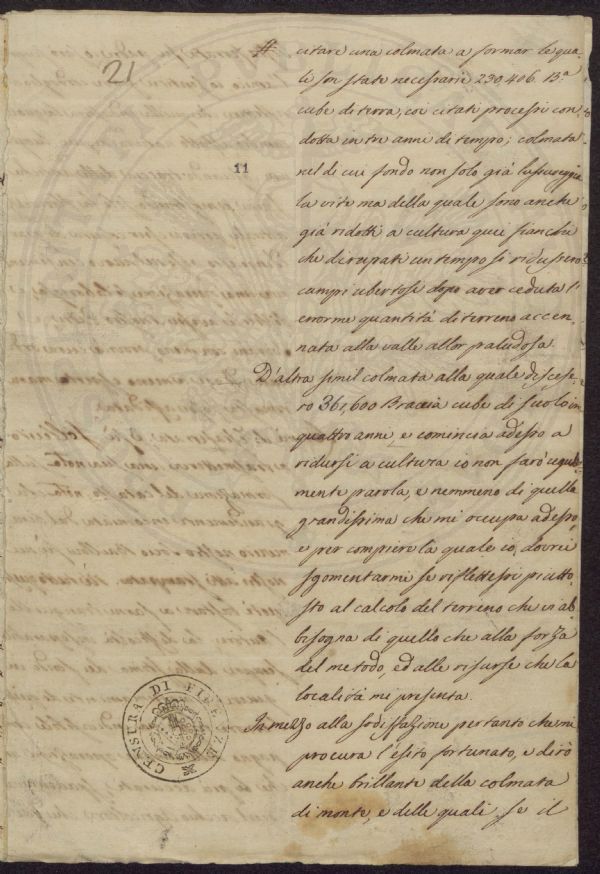 21
#
11
citare una colmata a formar le qua-
li son state necessarie 230,406. B.ª
cube di terra, coi citati processi con-
dotta in tre anni di tempo; colmata
nel di cui fondo non solo già lussureggia
la vite ma della quale sono anche
già ridotti a cultura quei fianchi
che dirupati un tempo si ridussero
campi ubertosi dopo aver ceduta l'
enorme quantità di terreno accen-
nata alla valle allor paludosa.
D'altra simil colmata alla quale discese-
ro 361,600 Braccia cube di suolo in
quattro anni, e comincia adesso a
ridursi a cultura io non farò egual-
mente parola, e nemmeno di quella
grandissima che mi occupa adesso,
e per compiere la quale io, dovrei
sgomentarmi se riflettessi piutto-
sto al calcolo del terreno che vi ab-
bisogna di quello che alla forza
del metodo, ed alle risorse che la
località mi presenta.
In mezzo alla sodisfazione pertanto che mi
procura l'esito fortunato, e dirò
anche brillante della colmata
di monte, e delle quali se il
CENSURA DI FIRENZE